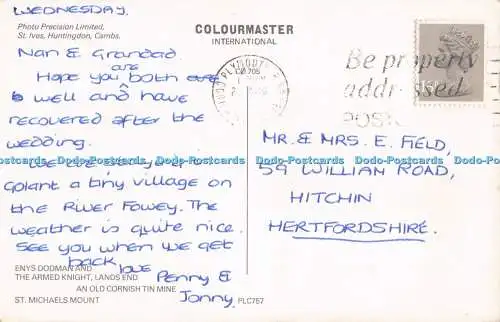 WEDNESDAY.
Photo Precision Limited,
St. Ives, Huntingdon, Cambs.
COLOURMASTER
INTERNATIONAL
Nan & Grandad
are
Hope you both are
well and have
recovered after the
wedding.
Golant a tiny village on
the River Fowey. The
weather is quite nice.
See you when we get
back love
Penny &
Jonny.
ENYS DODMAN AND
THE ARMED KNIGHT, LANDS END
AN OLD CORNISH TIN MINE
ST. MICHAELS MOUNT
PLC757
PLYMOUTH
Be properly
addressed
MR. & MRS. E. FIELD,
59 WILLIAN ROAD,
HITCHIN
HERTFORDSHIRE.
Dodo-Postcards Dodo-Postcards Dodo-Postcards Dodo-Postcards Dodo-Postcards Dodo-Postcards